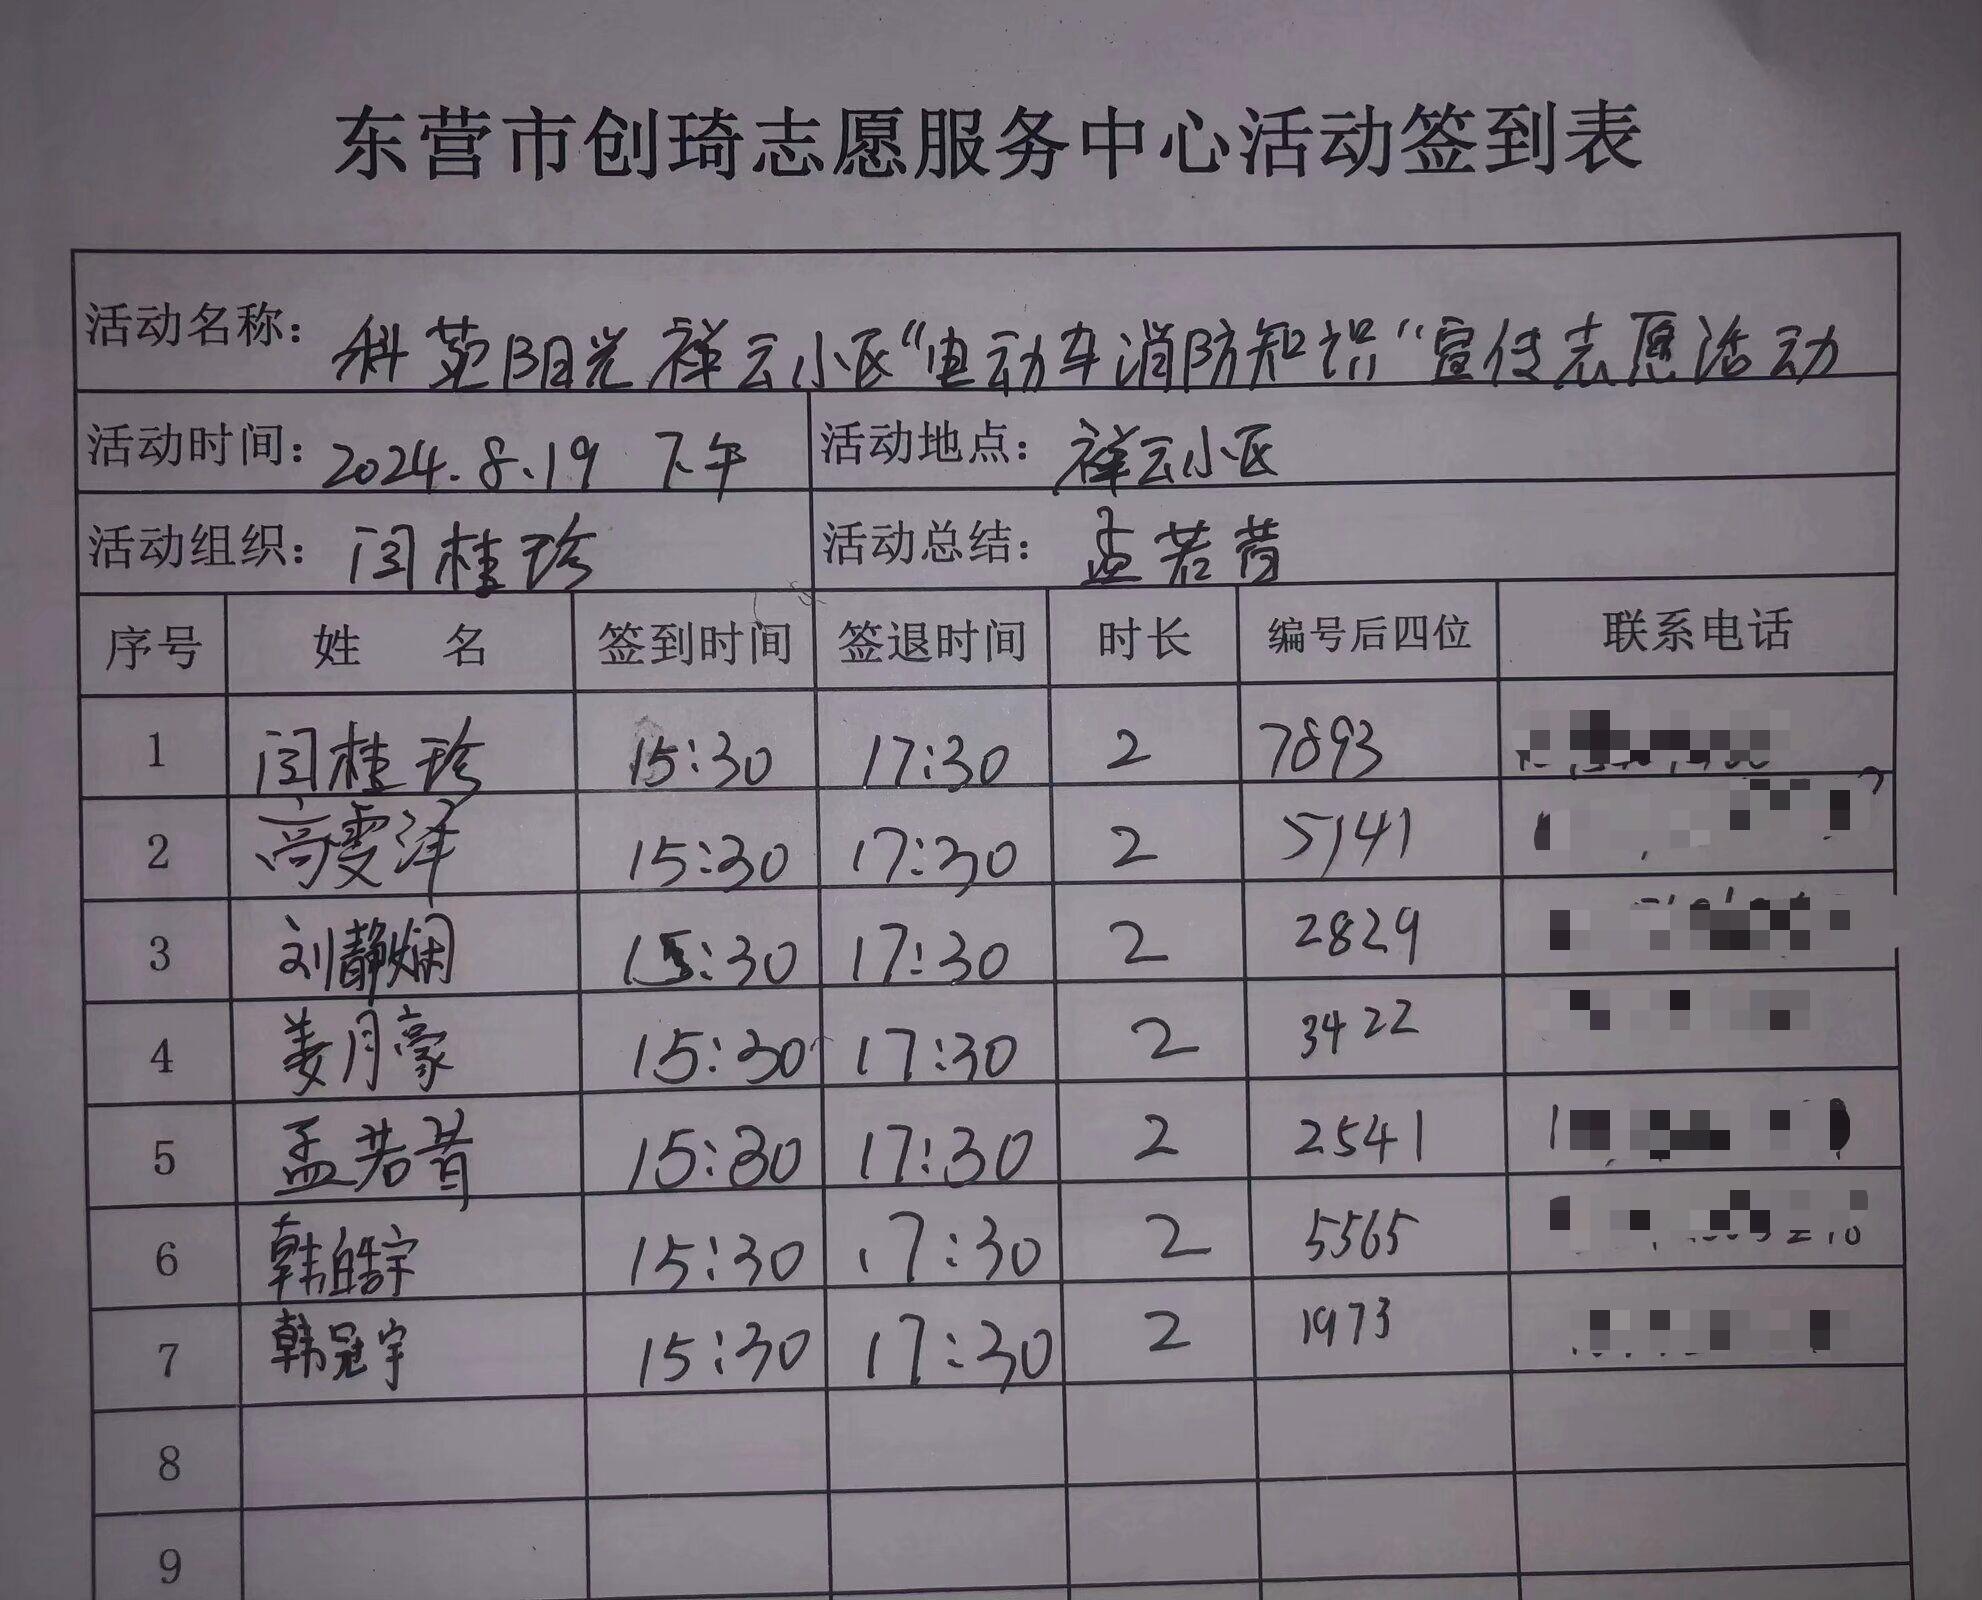 东营市创琦志愿服务中心活动签到表
活动名称: 科苑阳光祥云小区“电动车消防知识”宣传志愿活动
活动时间: 2024.8.19 下午 活动地点: 祥云小区
活动组织: 闫桂珍 活动总结: 孟若昔
序号 姓 名 签到时间 签退时间 时长 编号后四位 联系电话
1 闫桂珍 15:30 17:30 2 7893
2 高雯泽 15:30 17:30 2 5141
3 刘静娴 15:30 17:30 2 2829
4 姜月豪 15:30 17:30 2 3422
5 孟若昔 15:30 17:30 2 2541
6 韩皓宇 15:30 17:30 2 5565
7 韩冠宇 15:30 17:30 2 1973
8
9